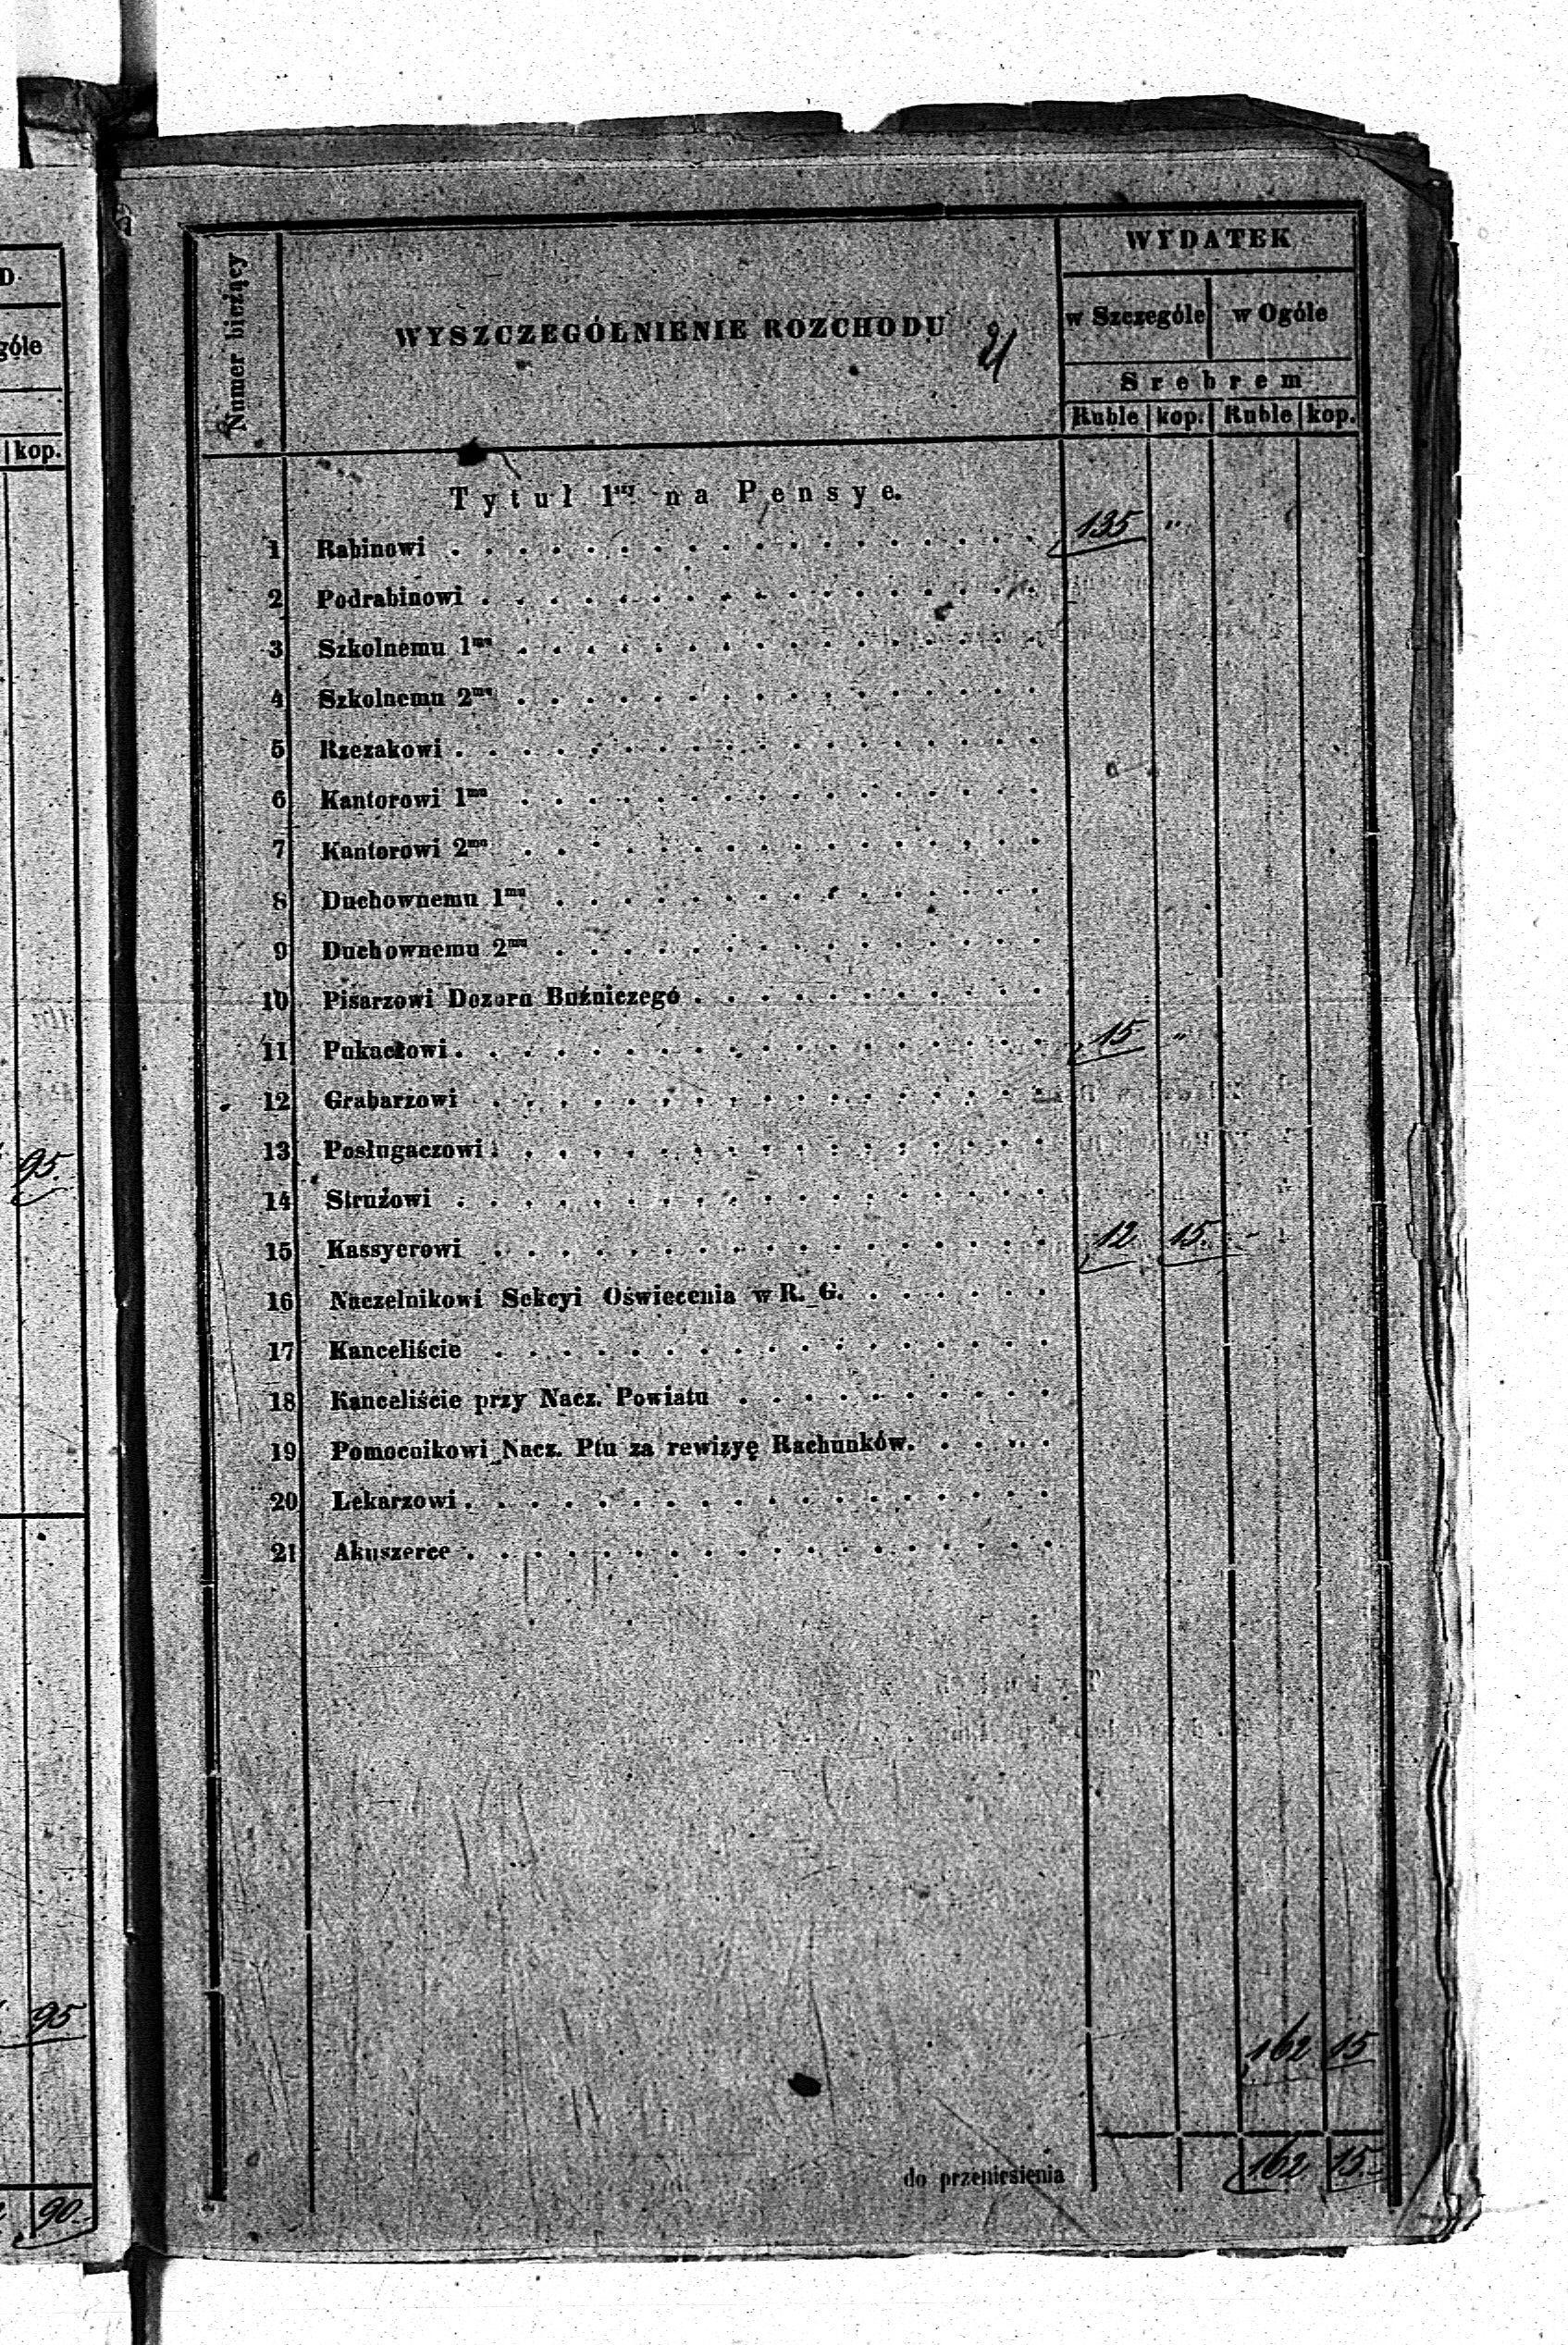 D
góle
kop.
95.
95
90.
Numer bieżący
WYSZCZEGÓLNIENIE ROZCHODU
21
WYDATEK
w Szczególe w Ogóle
Srebrem
Ruble kop. Ruble kop.
Tytuł 1szy na Pensye.
1 Rabinowi . . . . . . . . . . . . . . . . . . 135 "
2 Podrabinowi . . . . . . . . . . . . . . . . .
3 Szkolnemu 1mu . . . . . . . . . . . . . . . .
4 Szkolnemu 2mu . . . . . . . . . . . . . . . .
5 Rzezakowi . . . . . . . . . . . . . . . . . .
6 Kantorowi 1mu . . . . . . . . . . . . . . . .
7 Kantorowi 2mu . . . . . . . . . . . . . . . .
8 Duchownemu 1mu . . . . . . . . . . . . . . .
9 Duchownemu 2mu . . . . . . . . . . . . . . .
10 Pisarzowi Dozoru Bużniczego . . . . . . . . . . .
11 Pukaczowi . . . . . . . . . . . . . . . . . . 15 "
12 Grabarzowi . . . . . . . . . . . . . . . . .
13 Posługaczowi . . . . . . . . . . . . . . . . .
14 Stružowi . . . . . . . . . . . . . . . . . .
15 Kassyerowi . . . . . . . . . . . . . . . . . 12 15.
16 Naczelnikowi Sekcyi Oświecenia w R. G. . . . . . .
17 Kanceliście . . . . . . . . . . . . . . . . .
18 Kanceliście przy Nacz. Powiatu . . . . . . . . . .
19 Pomocnikowi Nacz. Ptu za rewizyę Rachunków. . . . .
20 Lekarzowi . . . . . . . . . . . . . . . . . .
21 Akuszerce . . . . . . . . . . . . . . . . . .
162 15
do przeniesienia 162 15.